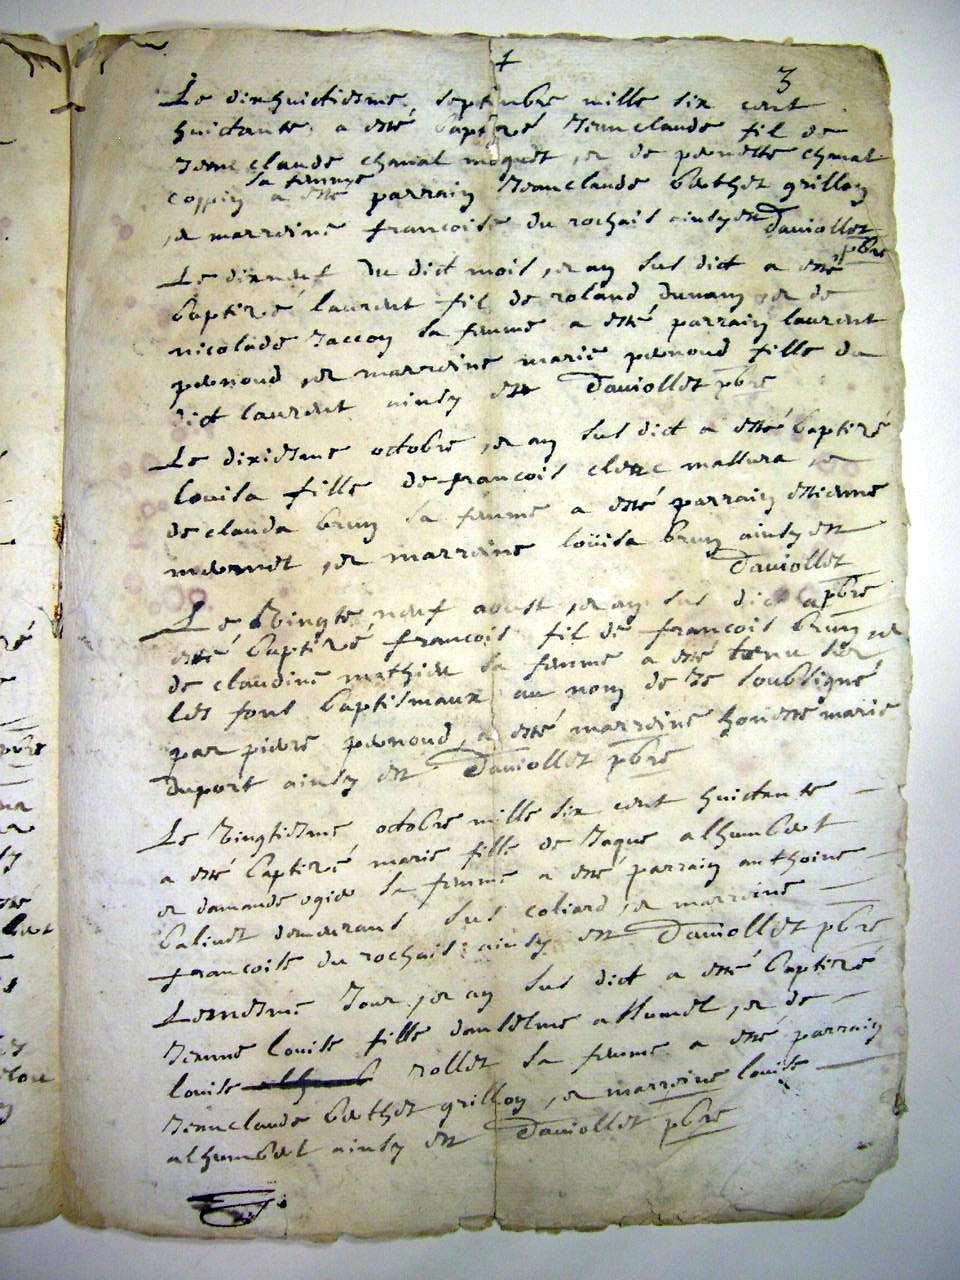 + 3
Le dixhuictiesme septembre mille six cent
huictante a esté baptizé Jeanclaude fil de
Jeanclaude chenal moquet ,et de pernette chenal
sa femme
coppin a esté parrain Jeanclaude berthet grillon
,et marreine francoise du rochais ainsy est Dauiollet
pbre
Le dixneuf du dict mois ,et an sus dict a esté
baptizé laurent fil de roland dunant ,et de
nicolade Jaccon sa femme a esté parrain laurent
pernoud ,et marreine marie pernoud fille du
dict laurent ainsy est Dauiollet pbre
Le dixiesme octobre ,et an sus dict a esté baptizé
louisa fille de francois clerc massura ,et
de clauda brun sa femme a esté parrain estienne
mermet ,et marreine loüisa brun ainsy est
Dauiollet
pbre
Le vingte neuf aoust ,et an sus dict a
esté baptizé francois fil de francois brun ,et
de claudine mathieu sa femme a esté tenu sur
les fons baptismaux au nom de Je soubsigné
par pierre pernoud, a esté marreine honeste marie
duport ainsy est Dauiollet pbre
Le vingtiesme octobre mille six cent huictante
a esté baptizé marie fille de Jaque alhumbert
et damaude ogier sa femme a esté parrain anthoine
balivet demeurant sus coliard ,et marreine
francoise du rochais ainsy est Dauiollet pbre
Lemesme Jour ,et an sus dict a esté baptizé
Jeanne louise fille danselme allumel ,et de
louise rollet sa femme a esté parrain
Jeanclaude berthet grillon ,et marreine louise
alhumbert ainsy est Dauiollet pbre